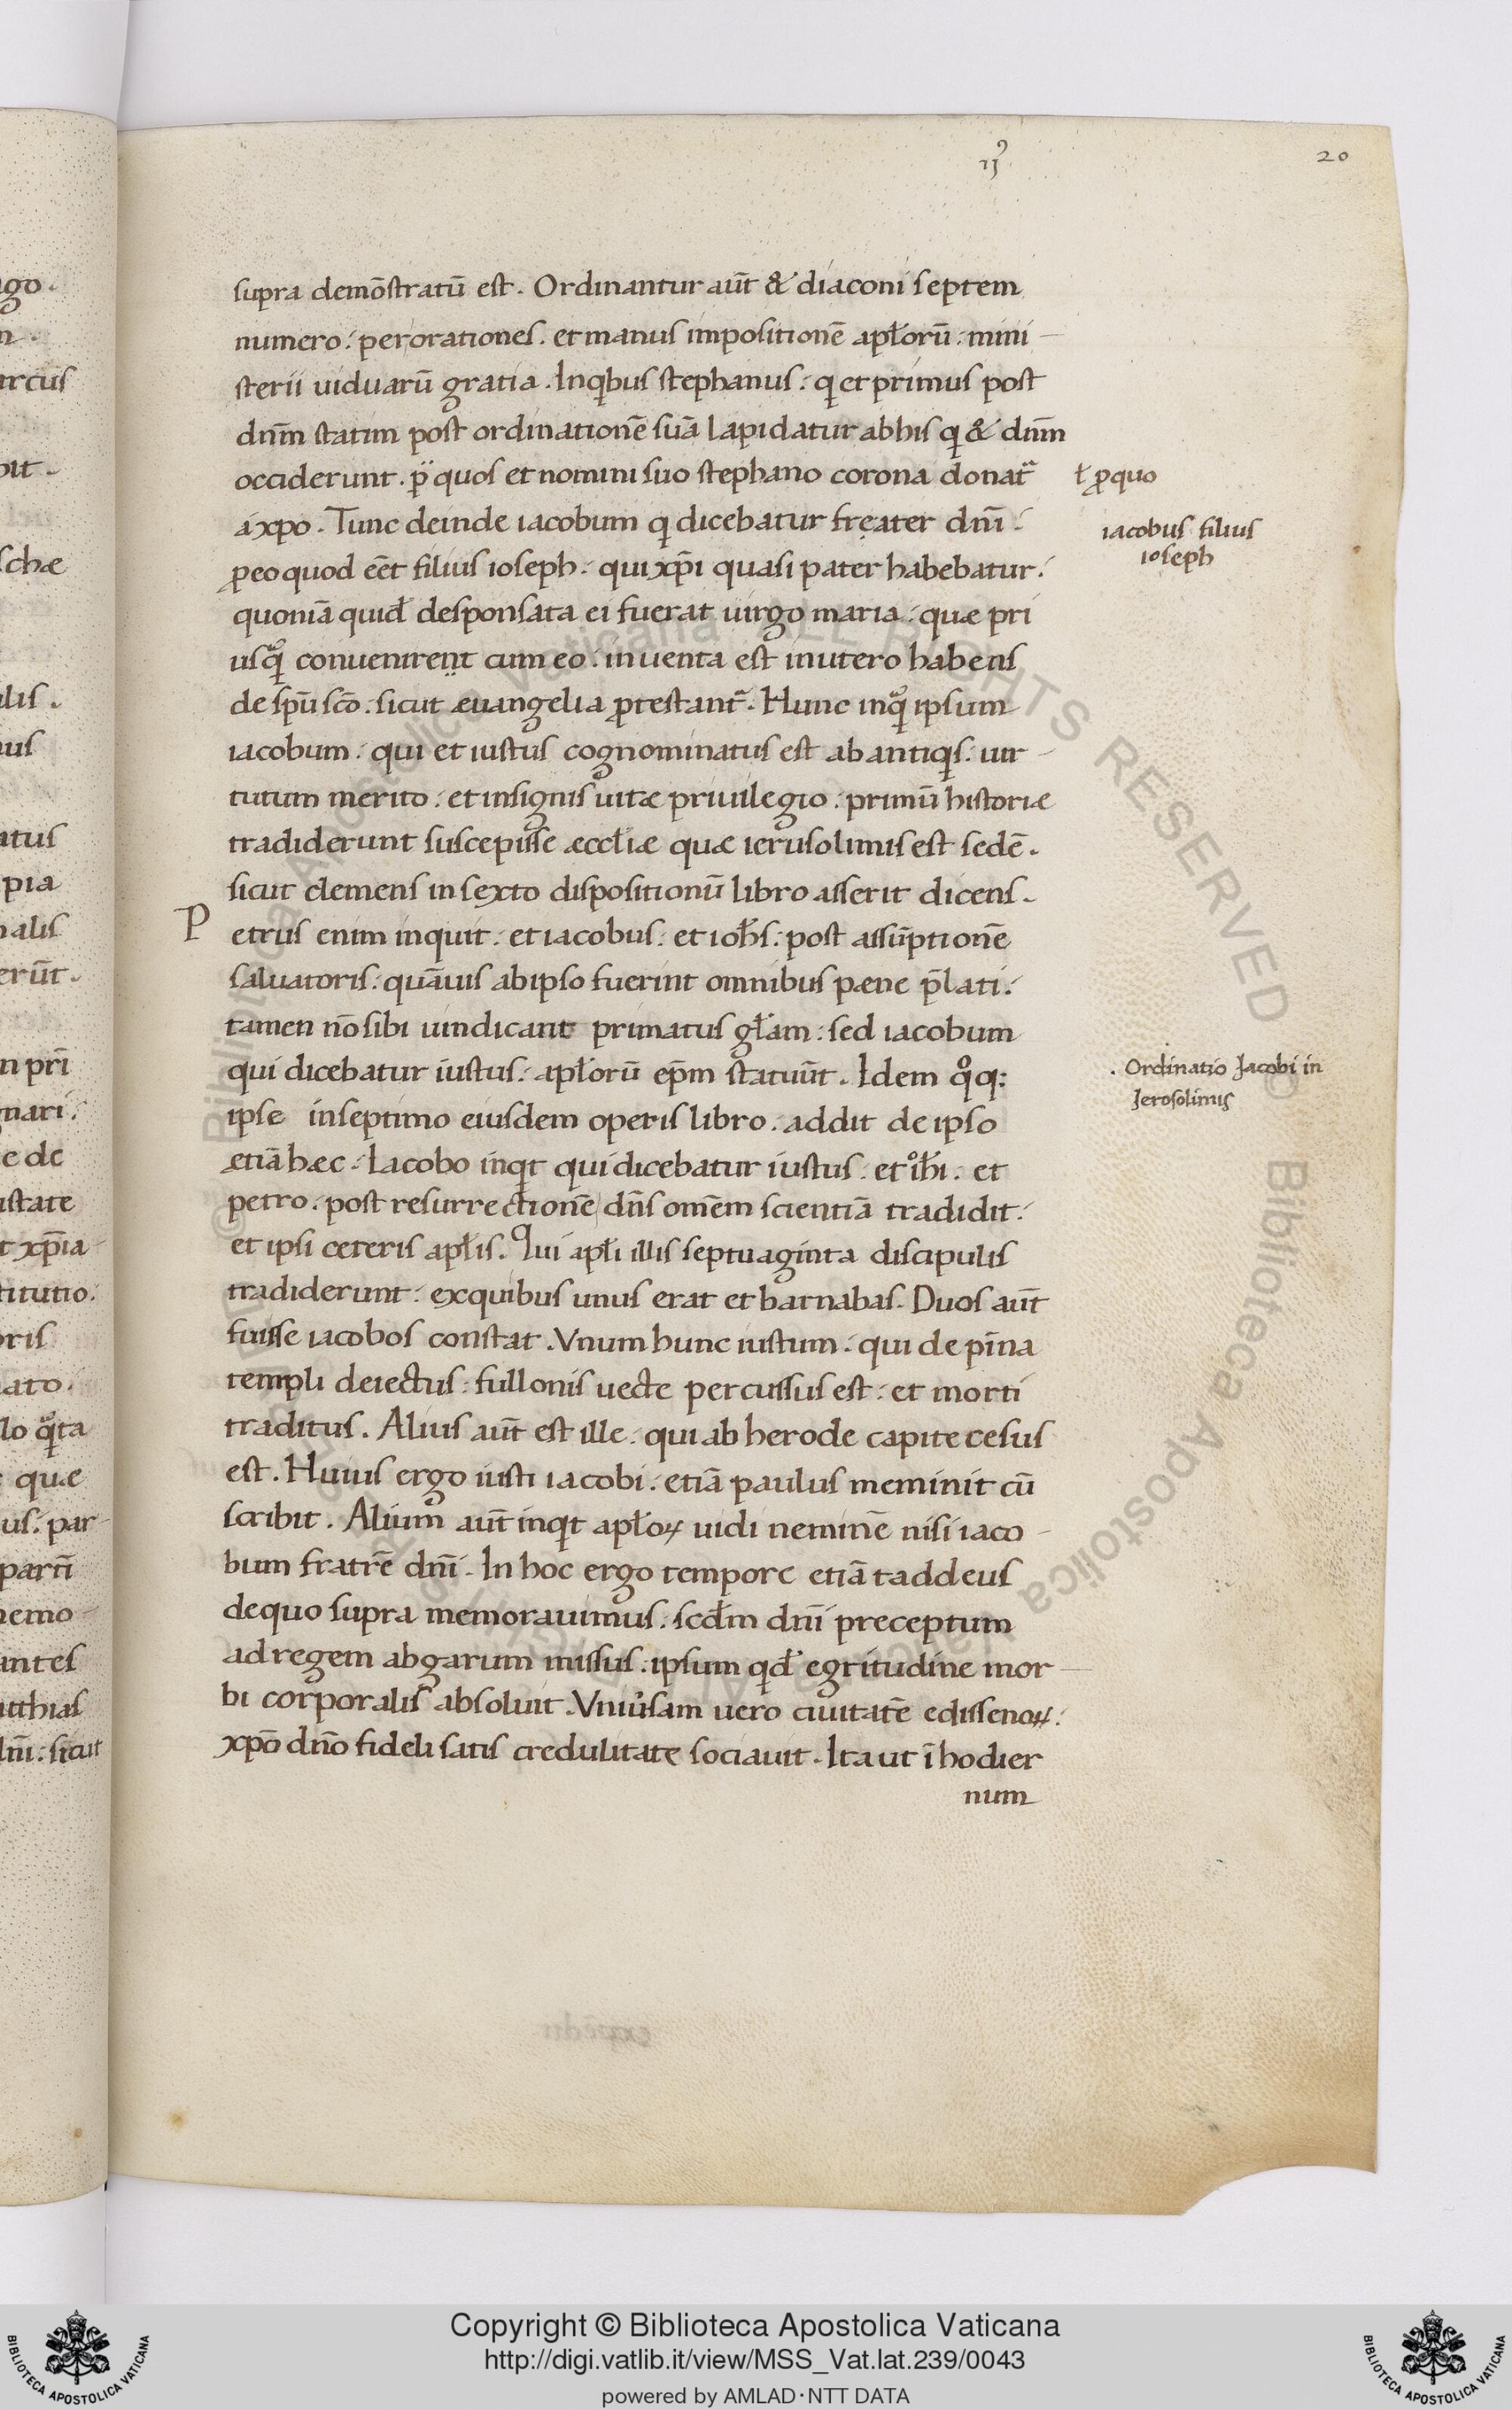 ijꝰ
20
supra demōstratū est. Ordinantur aūt & diaconi septem
numero: per orationes. et manus impositionē apłorū: mini
sterii uiduarū gratia. In qͥbus stephanus: qͥ et primus post
dnm̄ statim post ordinationē suā lapidatur ab his qͥ & dnm̄
occiderunt. ꝑ quos et nomini suo stephano corona donat᷑
ł ꝓ quo
a xpo. Tunc deinde iacobum qͥ dicebatur freater dnī:
iacobus filius
ioseph
ꝓ eo quod eēt filius ioseph: qui xp̄i quasi pater habebatur:
quoniā quid desponsata ei fuerat uirgo maria: quae pri
usqͣ conuenirent cum eo: inuenta est in utero habens
de spū scō: sicut euangelia ꝓtestant᷑. Hunc inqͣ ipsum
iacobum: qui et iustus cognominatus est ab antiqͥs: uir
tutum merito: et insignis uitae priuilegio: primū historiae
tradiderunt suscepisse aeccłiae quae ierusolimis est sedē.
sicut clemens in sexto dispositionū libro asserit dicens.
Petrus enim inquit: et iacobus: et ioħs: post assūptionē
saluatoris: quāuis ab ipso fuerint omnibus paene p̄lati:
tamen nō sibi uindicant primatus głam: sed iacobum
qui dicebatur iustus: apłorū ep̄m statuūt. Idem qͦq:
. Ordinatio Jacobi in
Jerosolimis
ipse in septimo eiusdem operis libro: addit de ipso
etiā haec: Iacobo inqͥt qui dicebatur iustus: et iͦħi: et
petro: post resurrectionē dn̄s omēm scientiā tradidit:
et ipsi ceteris apłis. Qui apłi illis septuaginta discipulis
tradiderunt: ex quibus unus erat et barnabas. Duos aūt
fuisse iacobos constat. Vnum hunc iustum: qui de pīna
templi deiectus: fullonis uecte percussus est: et morti
traditus. Alius aūt est ille: qui ab herode capite cesus
est. Huius ergo iusti iacobi: etiā paulus meminit cū
scribit. Alium aūt inqͥt apłoꝝ uidi neminē nisi iaco
bum fratrē dnī. In hoc ergo tempore etiā taddeus
de quo supra memorauimus: scđm dnī preceptum
ad regem abgarum missus: ipsum qͥd egritudine mor
bi corporalis absoluit. Vniu͛sam uero ciuitatē edissenoꝝ:
xpō dnō fideli satis credulitate sociauit. Ita ut ī hodier
num
Copyright © Biblioteca Apostolica Vaticana
http://digi.vatlib.it/view/MSS_Vat.lat.239/0043
powered by AMLAD·NTT DATA